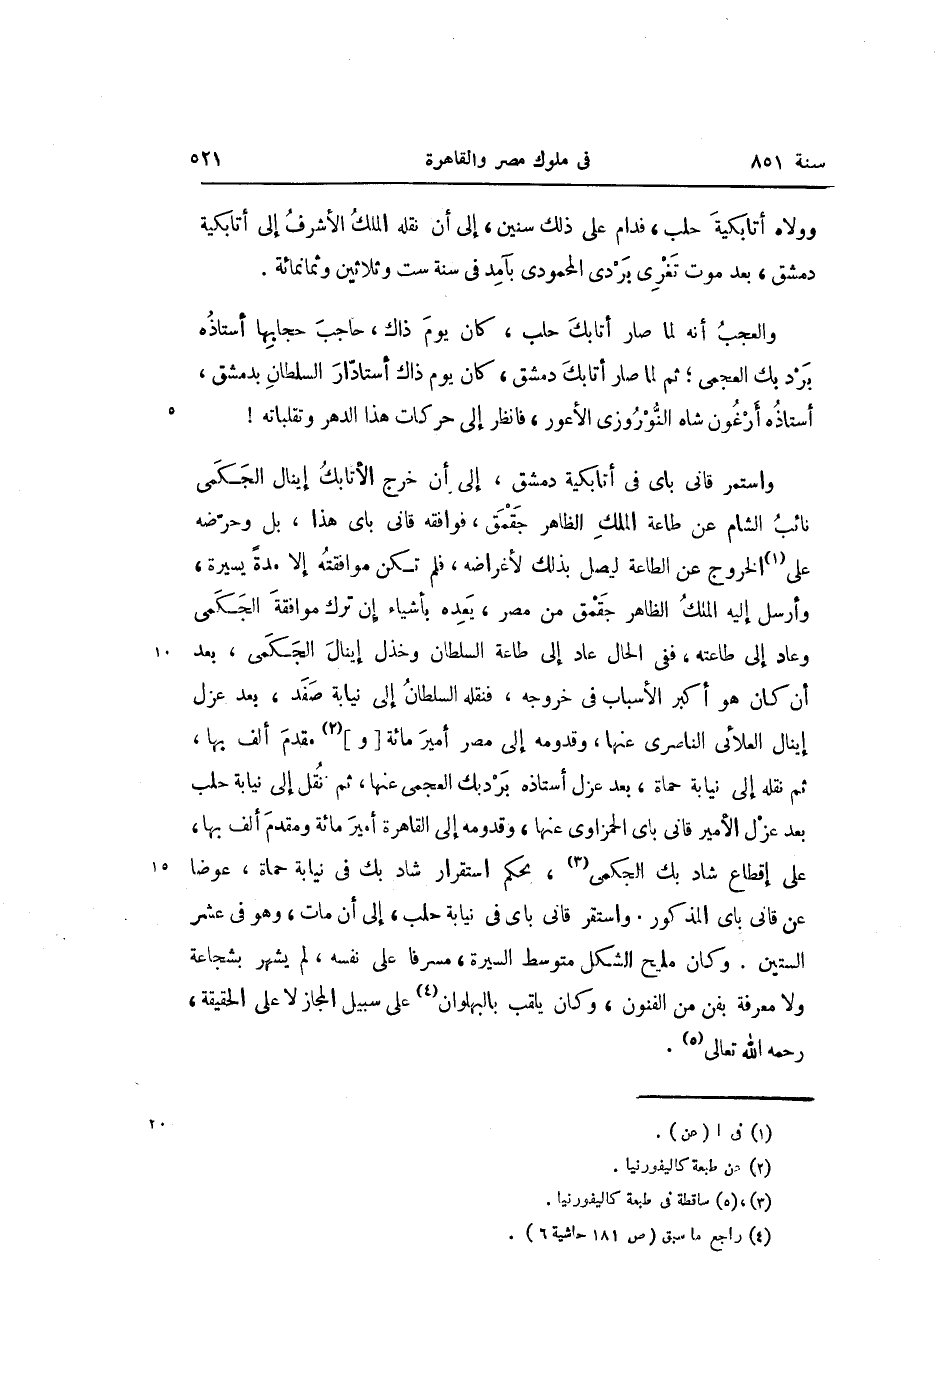 سنة ٨٥١ فى ملوك مصر والقاهرة ٥٢١
وولاه أتابكيةَ حلب ، فدام على ذلك سنين ، إلى أن نقله الملكُ الأشرفُ إلى أتابكية
دمشق ، بعد موت تَغْرِى بَرْدى المحمودى بآمِد فى سنة ست وثلاثين وثمانمائة .
والعجبُ أنه لما صار أتابكَ حلب ، كان يومَ ذاك ، حاجبَ حجابِها أستاذُه
بَرْد بك العجمى ؛ ثم لما صار أتابكَ دمشق ، كان يوم ذاك أستادّارَ السلطانِ بدمشق ،
أستاذُه أَرْغُون شاه النُّوْرُوزى الأعور ، فانظر إلى حركات هذا الدهر وتقلباته ! ٥
واستمر قانى باى فى أتابكية دمشق ، إلى أن خرج الأتابكُ إينال الجَـكَمى
نائبُ الشام عن طاعة الملكِ الظاهر جَقْمَق ، فوافقه قانى باى هذا ، بل وحرّضه
على(١) الخروج عن الطاعة ليصل بذلك لأغراضه ، فلم تـكن موافقتُه إلا مدةً يسيرة ،
وأرسل إليه الملكُ الظاهر جَقْمق من مصر ، يَعِده بأشياء إن ترك موافقةَ الجَـكَمى
وعاد إلى طاعته ، ففى الحال عاد إلى طاعة السلطان وخذل إينالَ الجَـكَمى ، بعد ١٠
أن كان هو أكبر الأسباب فى خروجه ، فنقله السلطانُ إلى نيابة صَفَد ، بعد عزل
إينال العلائى الناصرى عنها ، وقدومه إلى مصر أميرَ مائة [ و ](٢) مقدمَ ألف بها ،
ثم نقله إلى نيابة حماة ، بعد عزل أستاذه بَرْدبك العجمى عنها ، ثم نُقل إلى نيابة حلب
بعد عزْل الأمير قانى باى الحمزاوى عنها ، وقدومه إلى القاهرة أميرَ مائة ومقدمَ ألف بها ،
على إقطاع شاد بك الجكمى(٣) ، بحكم استقرار شاد بك فى نيابة حماة ، عوضا ١٥
عن قانى باى المذكور . واستقر قانى باى فى نيابة حلب ، إلى أن مات ، وهو فى عشر
الستين . وكان مليح الشكل متوسط السيرة ، مسرفا على نفسه ، لم يشهر بشجاعة
ولا معرفة بفن من الفنون ، وكان يلقب بالبهلوان(٤) على سبيل المجاز لا على الحقيقة ،
رحمه الله تعالى(٥) .
(١) فى ا ( عن ) . ٢٠
(٢) من طبعة كاليفورنيا .
(٣) ، (٥) ساقطة فى طبعة كاليفورنيا .
(٤) راجع ما سبق ( ص ١٨١ حاشية ٦ ) .